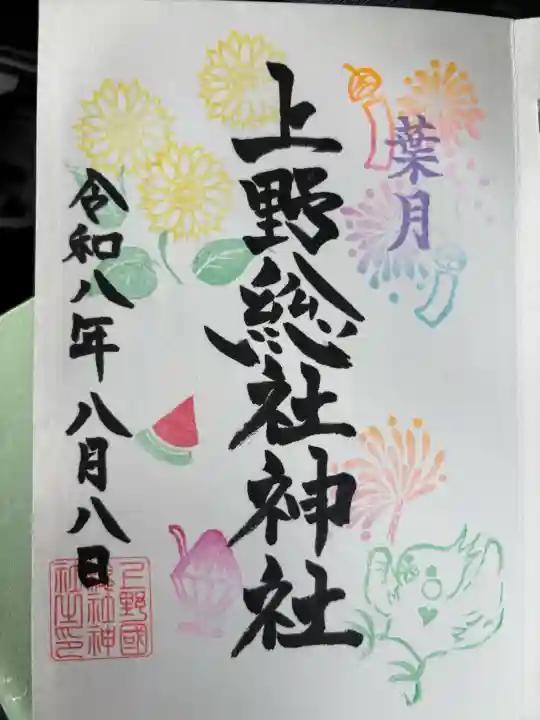 葉月
上野総社神社
令和八年八月八日
上野國
総社神
社之印